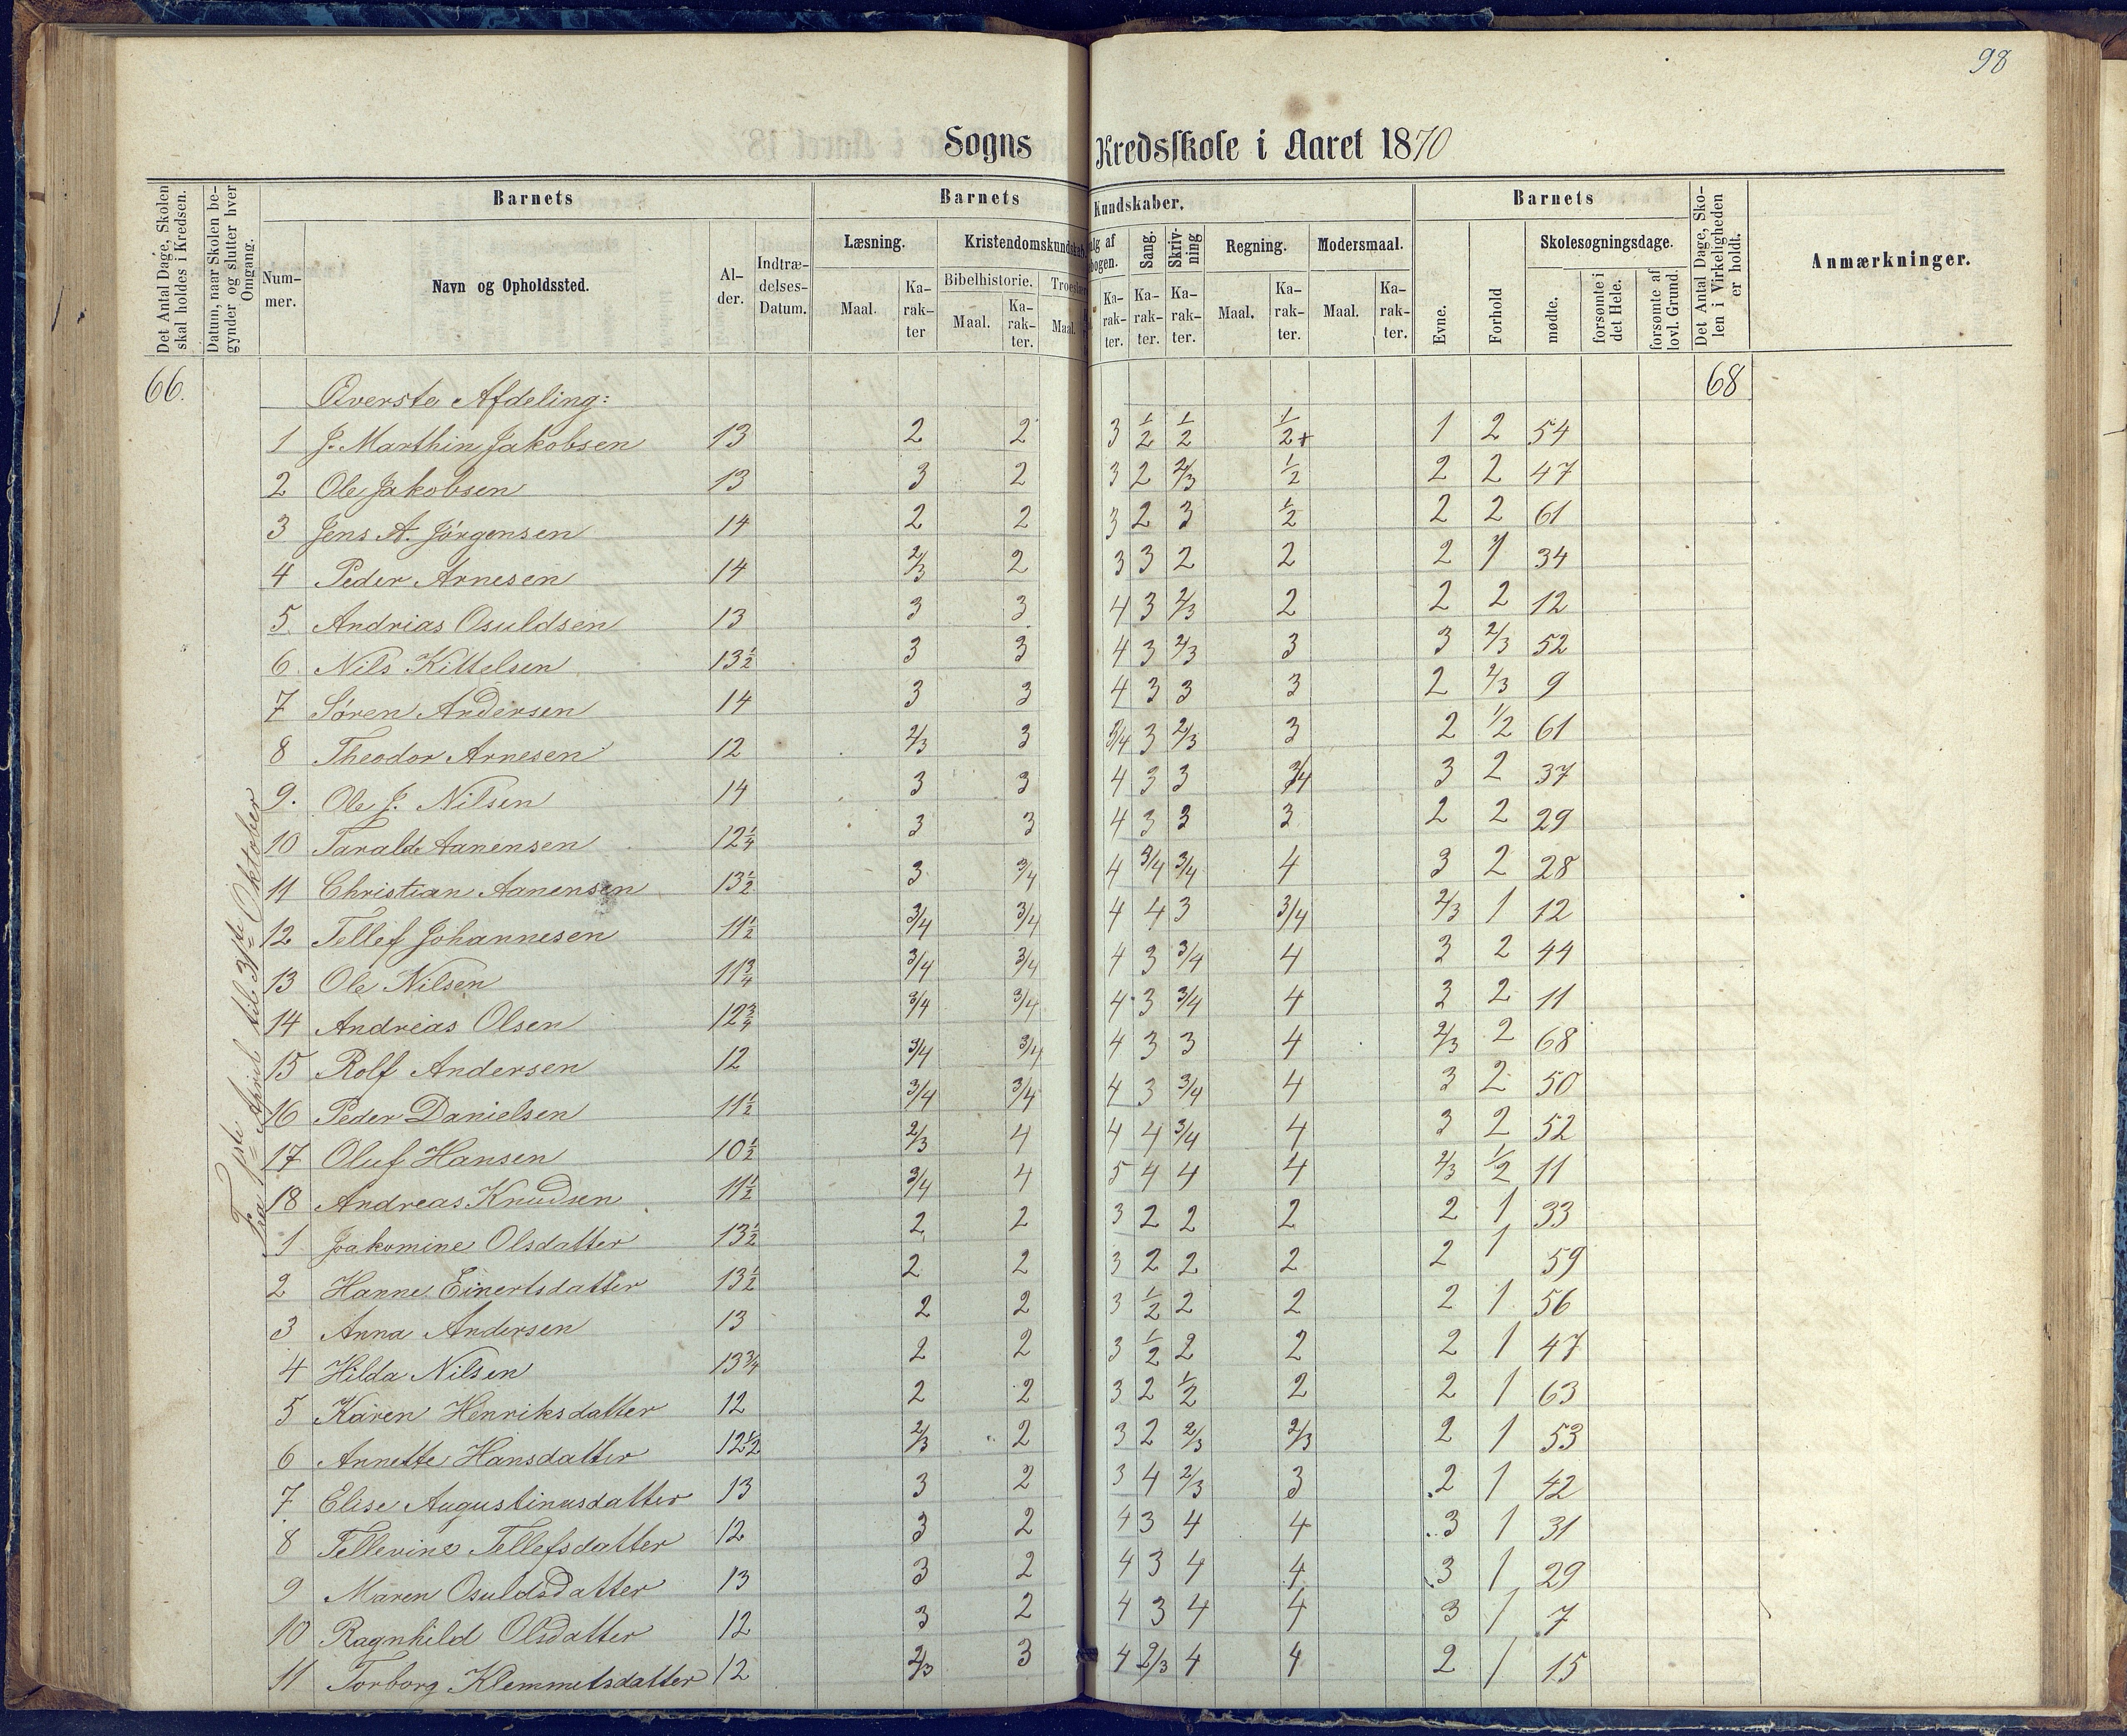 98
Sogns Kredsskole i Aaret 1870
Det Antal Dage, Skolen skal holdes i Kredsen.
Datum, naar Skolen begynder og slutter hver Omgang.
Barnets
Nummer.
Navn og Opholdssted.
Alder.
Indtrædelses-Datum.
Barnets Kundskaber.
Læsning.
Maal.
Karakter
Kristendomskundskab.
Bibelhistorie.
Maal.
Karakter.
Troeslære
Maal.
alg af
bogen.
Karakter.
Sang.
Karakter.
Skrivning
Karakter.
Regning.
Maal.
Karakter.
Modersmaal.
Maal.
Karakter.
Barnets
Evne.
Forhold
Skolesøgningsdage.
mødte.
forsømte i det Hele.
forsømte af lovl. Grund.
Det Antal Dage, Skolen i Virkeligheden er holdt.
Anmærkninger.
66. Øverste Afdeling: 68
Fra 1ste April til 31te Oktober
1 J. Marthin Jakobsen 13 2 2 3 1/2 1/2 1/2+ 1 2 54
2 Ole Jakobsen 13 3 2 3 2 2/3 1/2 2 2 47
3 Jens A. Jörgensen 14 2 2 3 2 3 1/2 2 2 61
4 Peder Arnesen 14 2/3 2 3 3 2 2 2 1 34
5. Andrias Osuldsen 13 3 3 4 3 2/3 2 2 2 12
6. Nils Kittelsen 13 1/2 3 3 4 3 2/3 3 3 2/3 52
7 Sören Andersen 14 3 3 4 3 3 3 2 2/3 9
8 Theodor Arnesen 12 2/3 3 3/4 3 2/3 3 2 1/2 61
9. Ole J. Nilsen 14 3 3 4 3 3 3/4 3 2 37
10 Tarald Aanensen 12 1/4 3 3 4 3 3 3 2 2 29
11 Christian Aanensen 13 1/2 3 3/4 4 3/4 3/4 4 3 2 28
12 Tellef Johannesen 11 1/2 3/4 3/4 4 4 3 3/4 2/3 1 12
13 Ole Nilsen 11 3/4 3/4 3/4 4 3 3/4 4 3 2 44
14 Andreas Olsen 12 3/4 3/4 3/4 4 3 3/4 4 3 2 11
15 Rolf Andersen 12 3/4 3/4 4 3 3 4 2/3 2 68
16 Peder Danielsen 11 1/2 3/4 3/4 4 3 3/4 4 3 2 50
17 Oluf Hansen 10 1/2 2/3 4 4 4 3/4 4 3 2 52
18 Andreas Knudsen 11 1/2 3/4 4 5 4 4 4 2/3 1/2 11
1 Jakomine Olsdatter 13 1/2 2 2 3 2 2 2 2 1 33
2 Hanne Einertsdatter 13 1/2 2 2 3 2 2 2 2 1 59
3 Anna Andersen 13 2 2 3 1/2 2 2 2 1 56
4 Hilda Nilsen 13 3/4 2 2 3 1/2 2 2 2 1 47
5 Karen Henriksdatter 12 2 2 3 2 1/2 2 2 1 63
6 Annette Hansdatter 12 1/2 2/3 2 3 2 2/3 2/3 2 1 53
7. Elise Augustinusdatter 13 3 2 3 4 2/3 3 2 1 42
8 Tellevine Tellefsdatter 12 3 2 4 3 4 4 3 1 31
9 Maren Osuldsdatter 13 3 2 4 3 4 4 3 1 29
10 Ragnhild Olsdatter 12 3 2 4 3 4 4 3 1 7
11 Torborg Klemmetsdatter 12 2/3 3 4 2/3 4 4 2 1 15